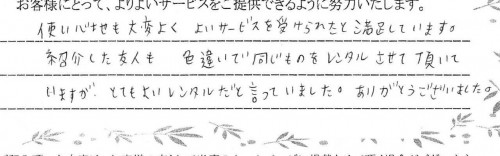 お客様にとって、よりよいサービスをご提供できるように努力いたします。
使い心地も大変よく よいサービスを受けられたと満足しています。
紹介した友人も 色違いで同じものをレンタルさせて頂いて
いますが、とてもよいレンタルだと言っていました。ありがとうございました。